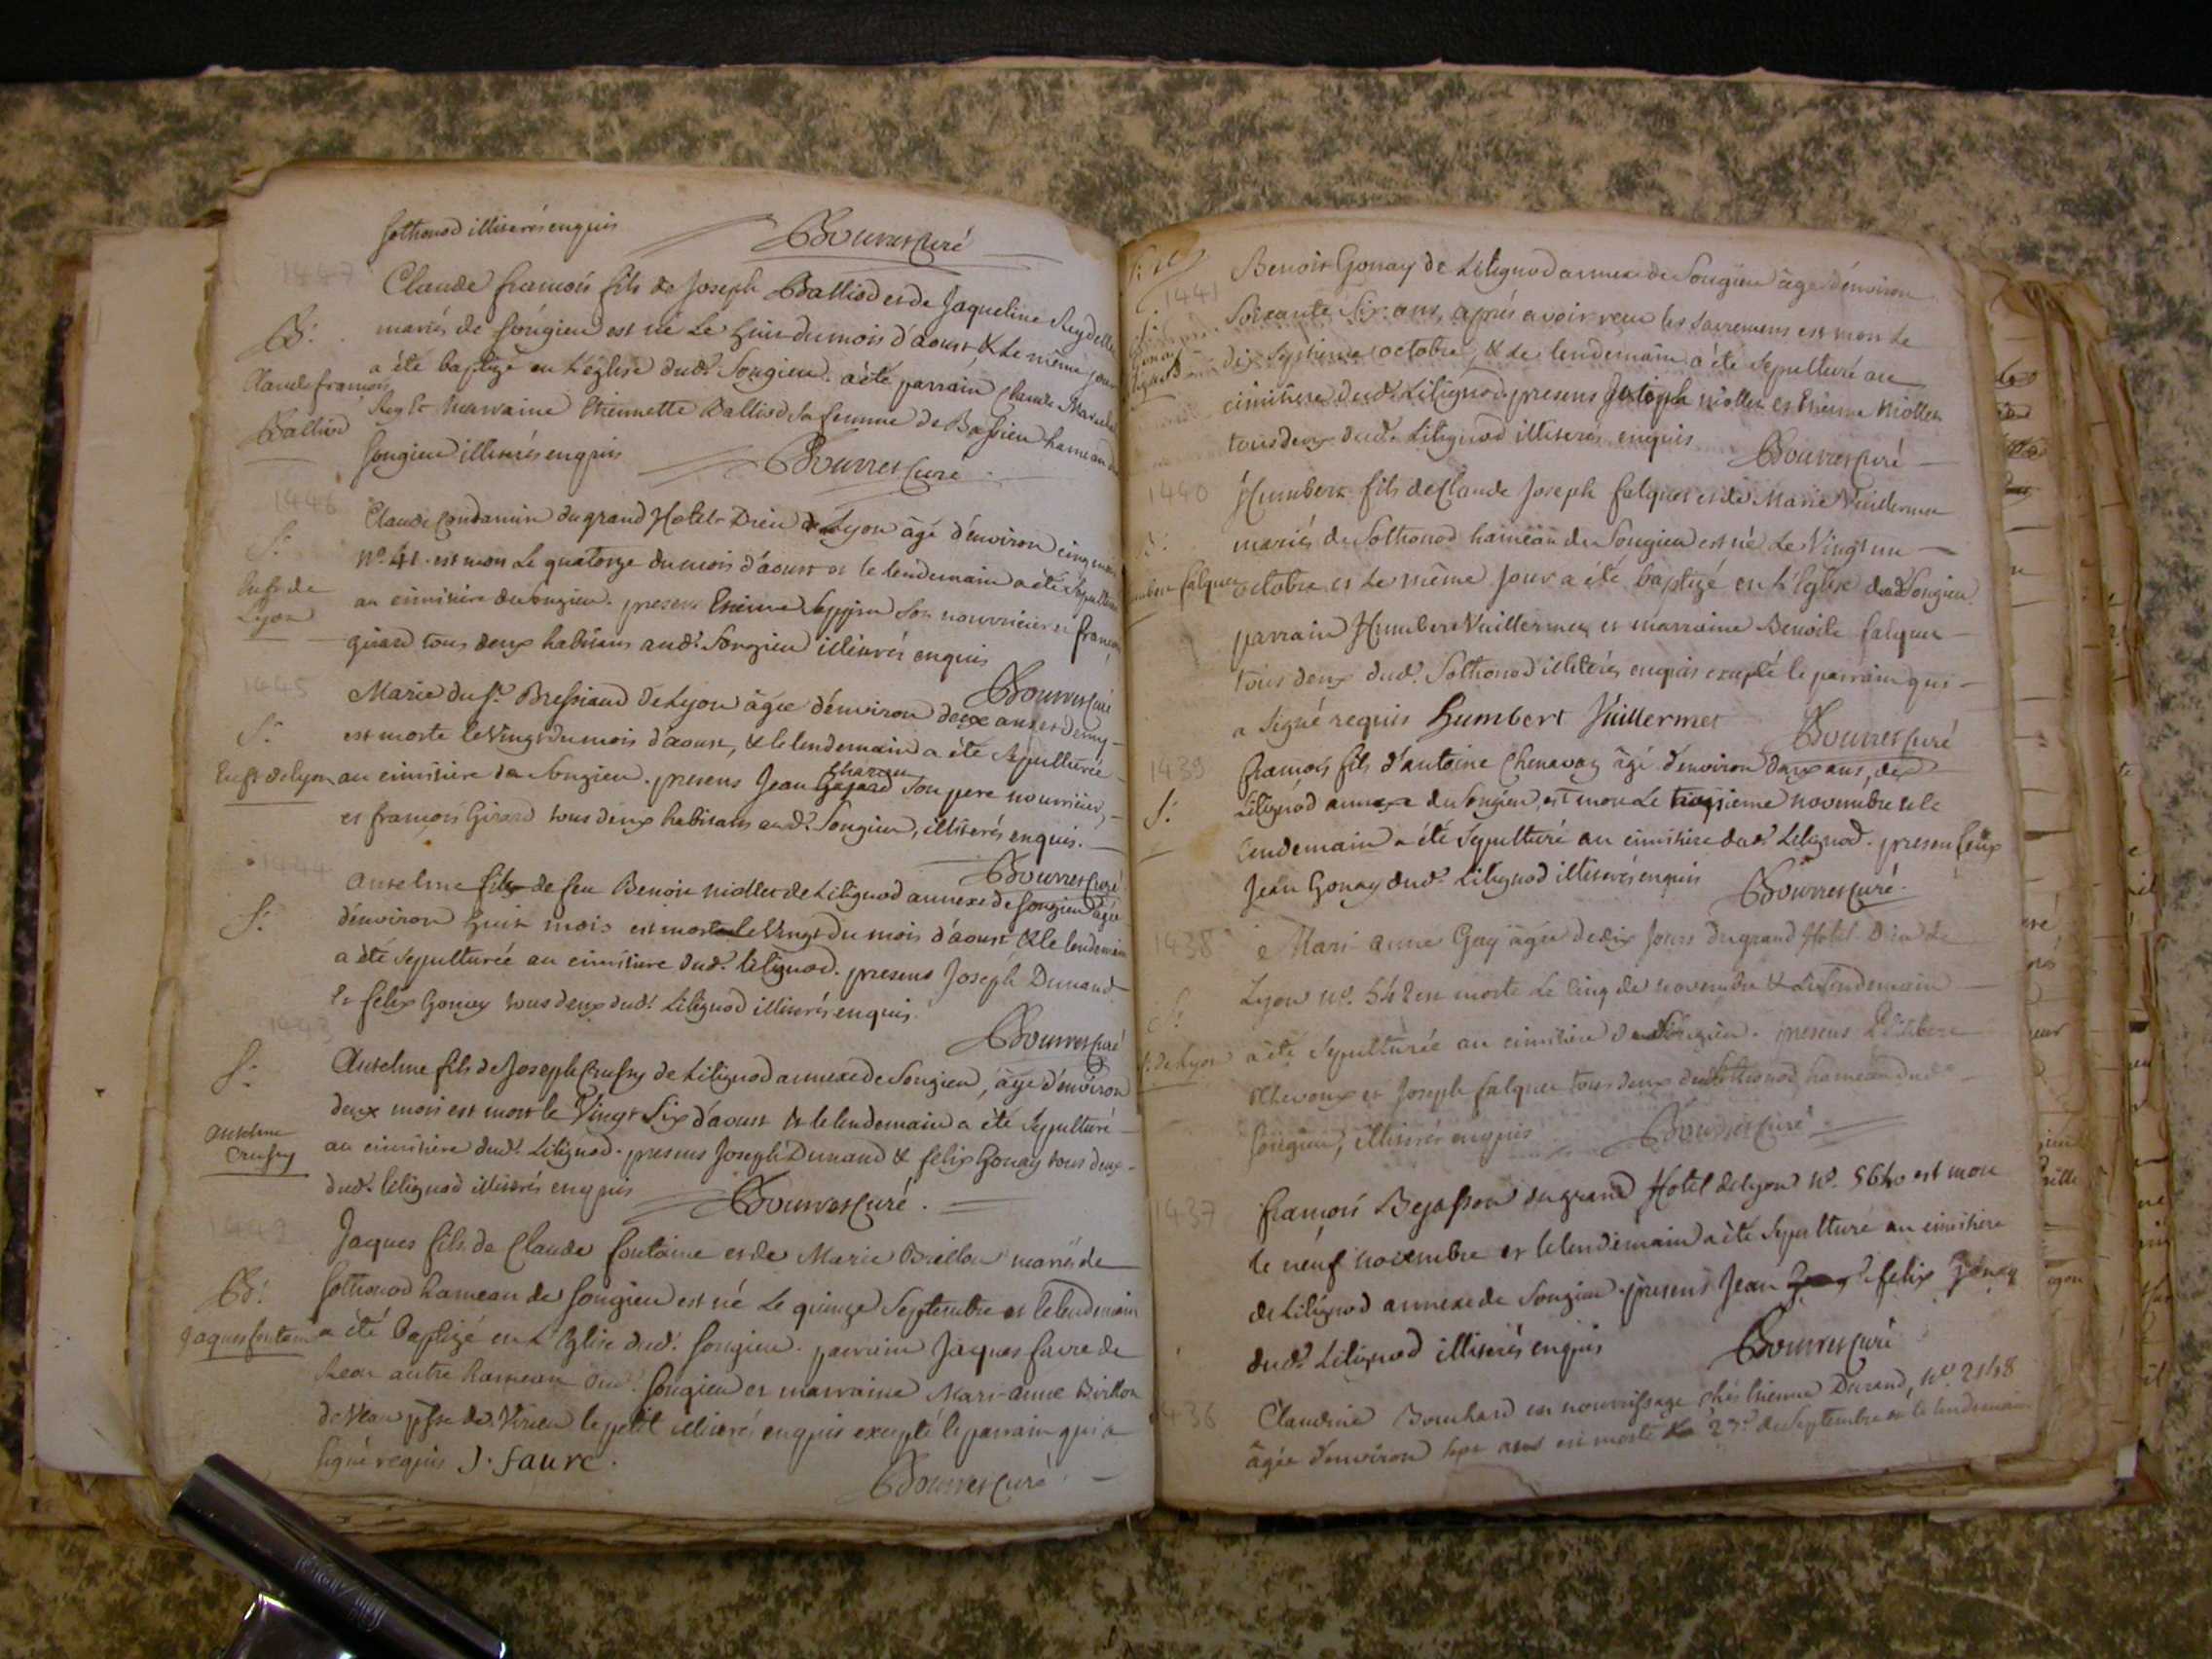 Sothonod illiterés enquis Bourret Curé
1447
Claude francois fils de Joseph Balliod et de Jaqueline Reydelle
mariés de Songieu est né Le huit du mois d'aoust & Le même jour
B:
a été baptizé en L'église dud.t Songieu. a été parrain Claude
Claude francois Balliod
Rey & marraine Etiennette Balliod sa femme de Bassieu hameau de
Songieu illiterés enquis Bourret Curé
1446
Claude Condamin du grand Hotel-Dieu de Lyon âgé d'environ cinq mois
S:
n.o 41. est mort Le quatorze du mois d'aoust et le lendemain a été sepulturé
Enf.t de Lyon
au cimitiere de Songieu. presens Etienne Seppin son nourricier et francois
girard tous deux habitans aud.t Songieu illiterés enquis
Bourret Curé
1445
Marie du S.r Bressiaud de Lyon âgée d'environ deux ans et demy
S:
est morte le Vingt du mois d'aoust, & le lendemain a été sepulturée
Enf.t de Lyon
au cimitiere de Songieu. presens Jean son pere nourricier,
et francois Girard tous deux habitans aud.t Songieu, illiterés enquis.
Bourret Curé
1444
anselme fils de feu Benoit niollet de Litignod annexe de Songieu âgée
S:
d'environ huit mois est morte le Vingt du mois d'aoust & le lendemain
a été sepulturée au cimitiere dud.t Litignod. presens Joseph Dunand
& felix Gonay tous deux dud.t Litignod illiterés enquis.
Bourret Curé
1443
S:
Anselme fils de Joseph Crussy de Litignod annexe de Songieu, âgé d'environ
deux mois est mort le Vingt Six d'aoust & le lendemain a été sepulturé
anselme Crussy
au cimitiere dud.t Litignod. presens Joseph Dunand & felix Gonay tous deux
dud.t Litignod illiterés enquis Bourret Curé.
1442
Jaques fils de Claude fontaine et de Marie Brillon mariés de
B:
Sothonod hameau de Songieu est né Le quinze Septembre et le lendemain
Jaques fontaine
a été baptizé en L'Eglise dud.t Songieu. parrain Jaques favre de
autre hameau dud.t Songieu et marraine Mari-anne Brillon
de Virieu le petit illiterés enquis excepté le parrain qui a
signé requis J. faure.
Bourret Curé
1441
Benoit Gonay de Litignod annexe de Songieu âgé d'environ
Soixante Six ans, après avoir reçu les Sacremens est mort Le
dix Septieme octobre, & le lendemain a été sepulturé au
cimitiere dud.t Litignod. presens Joseph niollet et Etienne Niollet
tous deux dud.t Litignod illiterés enquis Bourret Curé
1440
Humbert fils de Claude Joseph falquet et de Marie Vuillermet
mariés de Sothonod hameau de Songieu est né Le Vingt un
octobre et Le même Jour a été baptizé en L'Eglise dud.t Songieu.
parrain Humbert Vuillermet et marraine Benoite falquet
tous deux dud.t Sothonod illiterés enquis excepté le parrain qui
a signé requis Humbert Vuillermet Bourret Curé
1439
francois fils d'antoine Chenavay âgé d'environ deux ans, de
S:
Litignod annexe de Songieu, est mort Le troisieme novembre & le
lendemain a été sepulturé au cimitiere dud.t Litignod. presens felix
Jean Gonay dud.t Litignod illiterés enquis Bourret Curé.
1438
Mari anne Gay âgée de dix jours du grand Hotel Dieu de
Lyon n.o 542 est morte Le cinq de novembre & Le lendemain
S:
E. de Lyon
a été sepulturée au cimitiere de Songieu. presens Philibert
et Joseph falquet tous deux de Sothonod hameau dud.t
Songieu, illiterés enquis Bourret Curé
1437
francois Bejasson du grand Hotel de Lyon n.o 5640 est mort
le neuf novembre et le lendemain a été sepulturé au cimitiere
de Litignod annexe de Songieu. presens Jean felix Gonay
dud.t Litignod illiterés enquis Bourret Curé
1436
Claudine Bouchard en nourrissage chés Etienne Durand, n.o 2148
âgée d'environ sept ans est morte le 23.e de Septembre et le lendemain